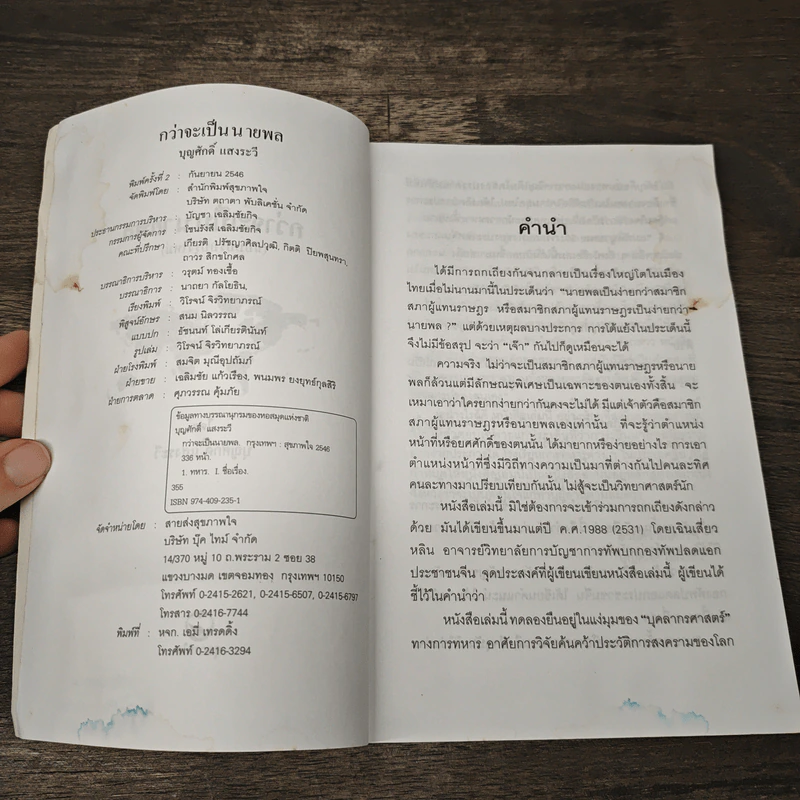 กว่าจะเป็นนายพล
บุญศักดิ์ แสงระวี
พิมพ์ครั้งที่ 2 : กันยายน 2546
จัดพิมพ์โดย : สำนักพิมพ์สุขภาพใจ
บริษัท ตถาตา พับลิเคชั่น จำกัด
ประธานกรรมการบริหาร : บัญชา เฉลิมชัยกิจ
กรรมการผู้จัดการ : โชนรังสี เฉลิมชัยกิจ
คณะที่ปรึกษา : เกียรติ ปรัชญาศิลปวุฒิ, กิตติ ปิยพสุนทรา,
ถาวร สิกขโกศล
บรรณาธิการบริหาร : วรุตม์ ทองเชื้อ
บรรณาธิการ : นาถยา กัลโยธิน,
เรียงพิมพ์ : วิโรจน์ จิรวิทยาภรณ์
พิสูจน์อักษร : สนม นิลวรรณ
แบบปก : ธัชนนท์ โล่เกียรตินันท์
รูปเล่ม : วิโรจน์ จิรวิทยาภรณ์
ฝ่ายโรงพิมพ์ : สมจิต มุณีอุปถัมภ์
ฝ่ายขาย : เฉลิมชัย แก้วเรือง, พนมพร ยงยุทธ์กุลสิริ
ฝ่ายการตลาด : ศุภวรรณ คุ้มภัย
ข้อมูลทางบรรณานุกรมของหอสมุดแห่งชาติ
บุญศักดิ์ แสงระวี
กว่าจะเป็นนายพล. กรุงเทพฯ : สุขภาพใจ 2546
336 หน้า.
1. ทหาร. I. ชื่อเรื่อง.
355
ISBN 974-409-235-1
จัดจำหน่ายโดย : สายส่งสุขภาพใจ
บริษัท บุ๊ค ไทม์ จำกัด
14/370 หมู่ 10 ถ.พระราม 2 ซอย 38
แขวงบางมด เขตจอมทอง กรุงเทพฯ 10150
โทรศัพท์ 0-2415-2621, 0-2415-6507, 0-2415-6797
โทรสาร 0-2416-7744
พิมพ์ที่ : หจก. เอมี่ เทรดดิ้ง
โทรศัพท์ 0-2416-3294
คำนำ
ได้มีการถกเถียงกันจนกลายเป็นเรื่องใหญ่โตในเมือง
ไทยเมื่อไม่นานมานี้ในประเด็นว่า “นายพลเป็นง่ายกว่าสมาชิก
สภาผู้แทนราษฎร หรือสมาชิกสภาผู้แทนราษฎรเป็นง่ายกว่า
นายพล ?” แต่ด้วยเหตุผลบางประการ การโต้แย้งในประเด็นนี้
จึงไม่มีข้อสรุป จะว่า “เจ๊า” กันไปก็ดูเหมือนจะได้
ความจริง ไม่ว่าจะเป็นสมาชิกสภาผู้แทนราษฎรหรือนาย
พลก็ล้วนแต่มีลักษณะพิเศษเป็นเฉพาะของตนเองทั้งสิ้น จะ
เหมาเอาว่าใครยากง่ายกว่ากันคงจะไม่ได้ มีแต่เจ้าตัวคือสมาชิก
สภาผู้แทนราษฎรหรือนายพลเองเท่านั้น ที่จะรู้ว่าตำแหน่ง
หน้าที่หรือยศศักดิ์ของตนนั้น ได้มายากหรือง่ายอย่างไร การเอา
ตำแหน่งหน้าที่ซึ่งมีวิถีทางความเป็นมาที่ต่างกันไปคนละทิศ
คนละทางมาเปรียบเทียบกันนั้น ไม่สู้จะเป็นวิทยาศาสตร์นัก
หนังสือเล่มนี้ มิใช่ต้องการจะเข้าร่วมการถกเถียงดังกล่าว
ด้วย มันได้เขียนขึ้นมาแต่ปี ค.ศ.1988 (2531) โดยเฉินเสี่ยว
หลิน อาจารย์วิทยาลัยการบัญชาการทัพบกกองทัพปลดแอก
ประชาชนจีน จุดประสงค์ที่ผู้เขียนเขียนหนังสือเล่มนี้ ผู้เขียนได้
ชี้ไว้ในคำนำว่า
หนังสือเล่มนี้ ทดลองยืนอยู่ในแง่มุมของ “บุคลากรศาสตร์”
ทางการทหาร อาศัยการวิจัยค้นคว้าประวัติการสงครามของโลก